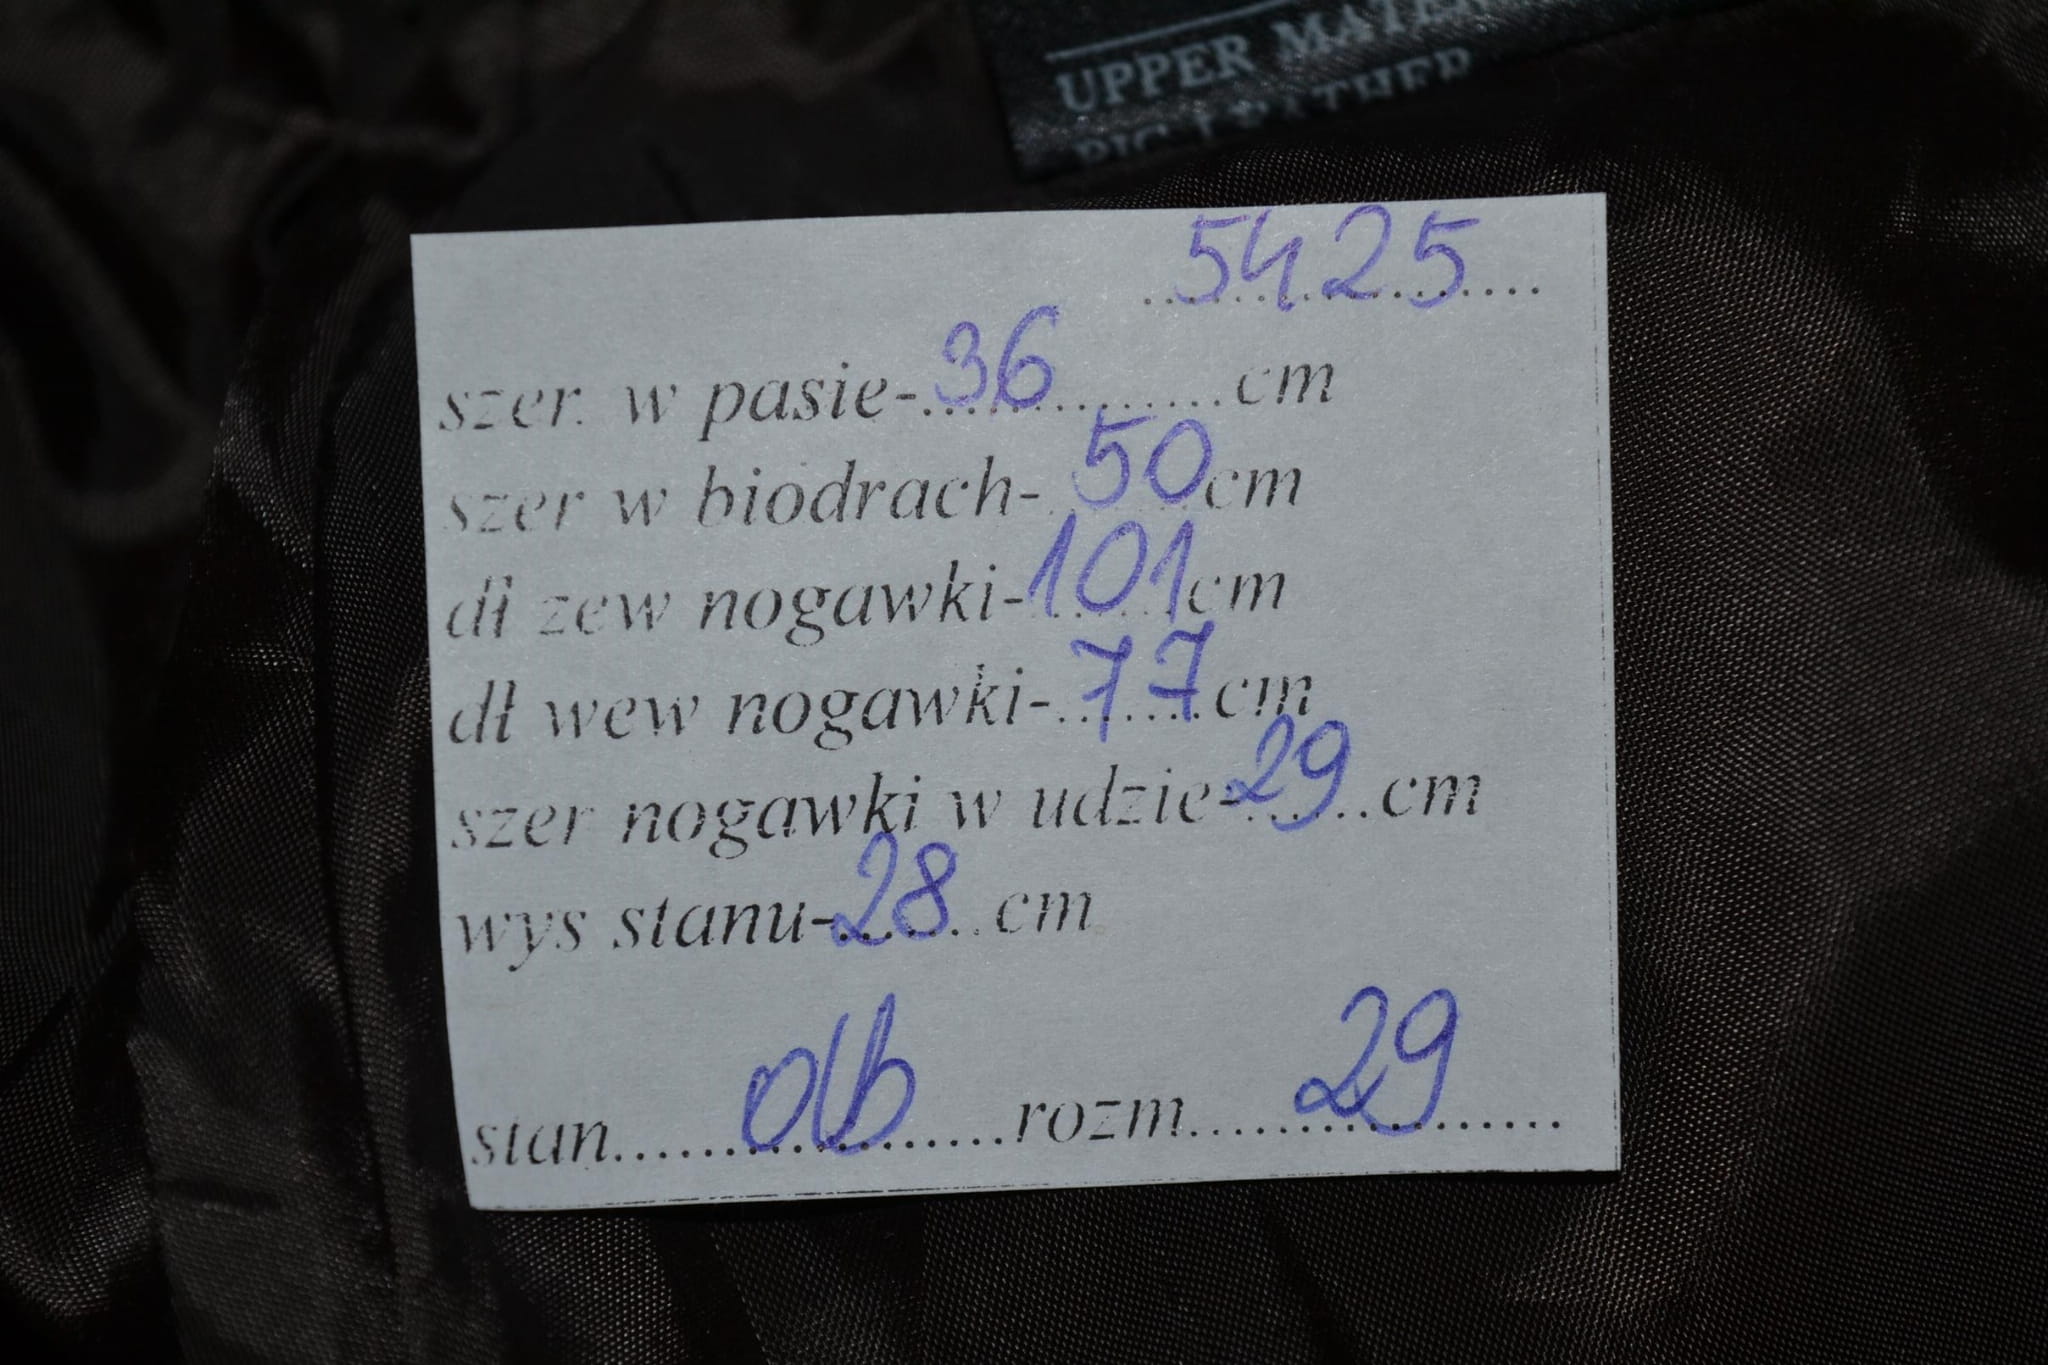 UPPER MATER
PIG LEATHER
5425
szer. w pasie-36 cm
szer w biodrach-50 cm
dł zew nogawki-101 cm
dł wew nogawki-77 cm
szer nogawki w udzie-29 cm
wys stanu-28 cm
stan db rozm 29